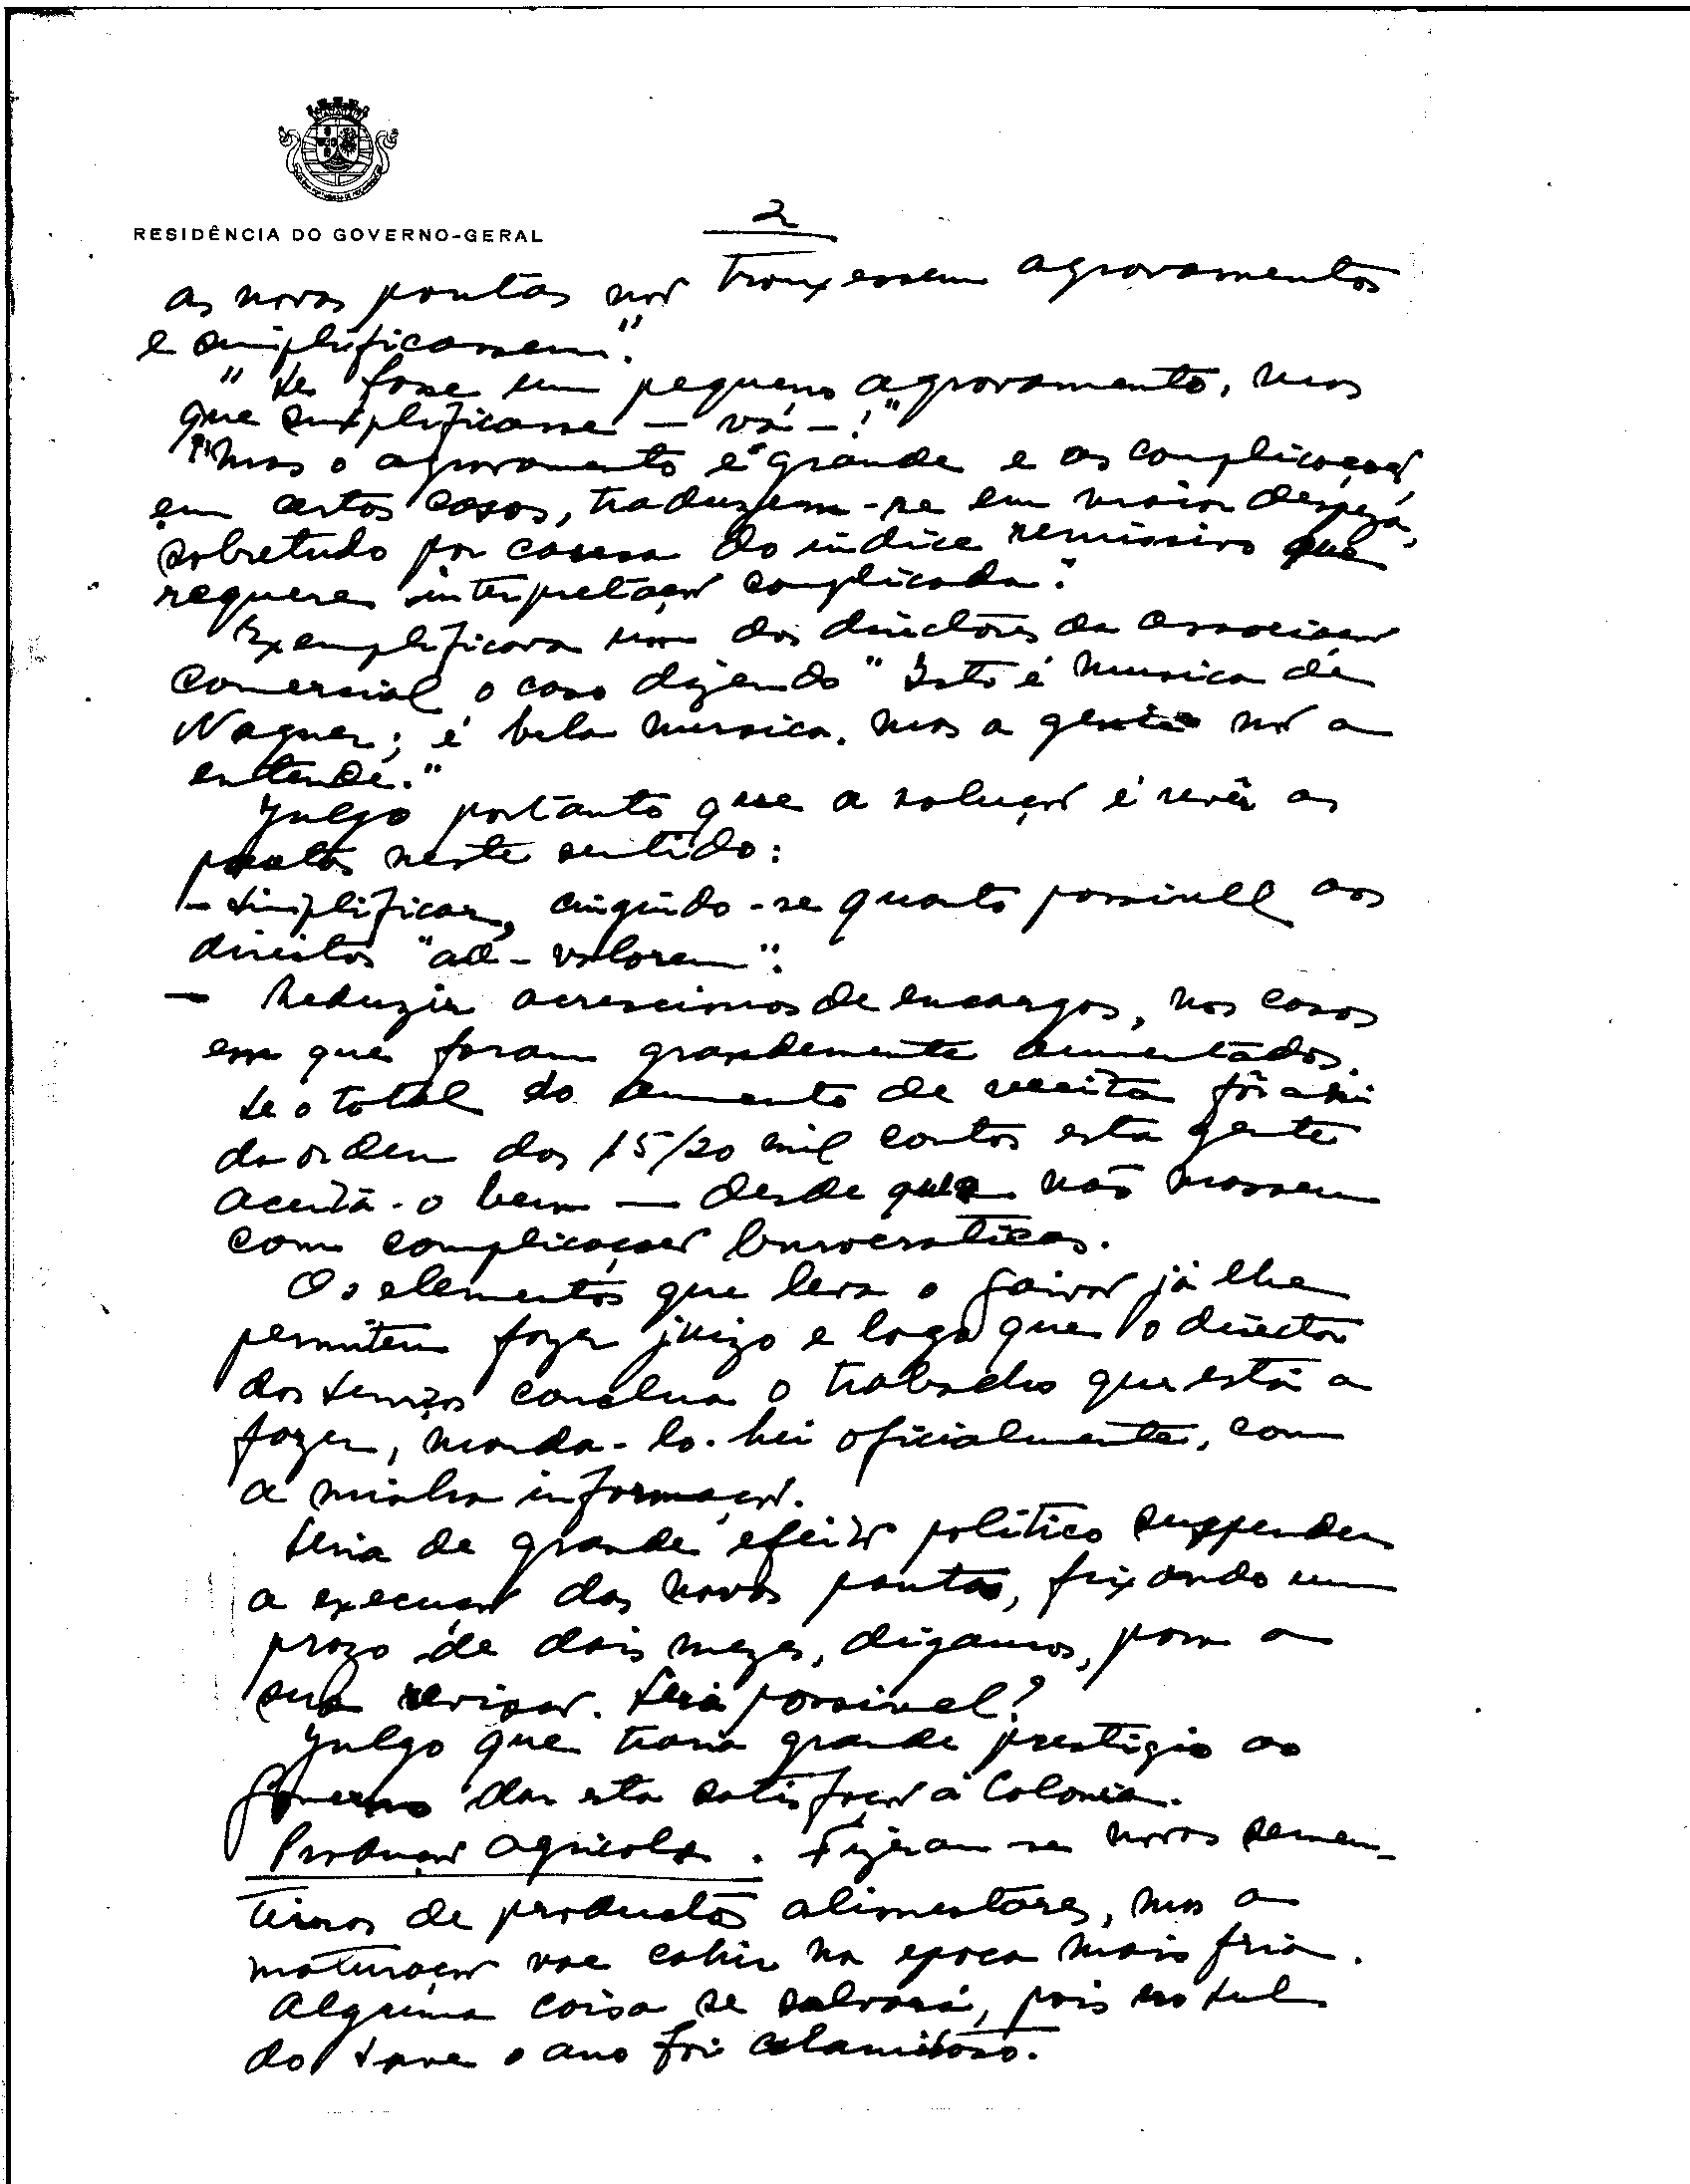 RESIDÊNCIA DO GOVERNO-GERAL
2
as novas pautas não trouxessem agravamentos
e simplificassem."
"Se fosse um pequeno agravamento, mas
que simplificasse — vá — !"
"Mas o agravamento é grande e as complicações,
em certos casos, traduzem-se em maior despeza,
sobretudo por causa do indice remissivo que
requere interpretação complicada."
Exemplificava um dos directores da Associação
Comercial o caso dizendo "Isto é musica de
Wagner; é bela musica, mas a gente não a
entende."
Julgo portanto que a solução é revêr as
pautas neste sentido:
— Simplificar, cingindo-se quanto possivel aos
direitos "ad-valorem".
— Reduzir acrescimos de encargos, nos casos
em que foram grandemente aumentados.
Se o total do aumento de receita fôr
da ordem dos 15/20 mil contos esta gente
aceita-o bem — desde que não massem
com complicações burocraticas.
Os elementos que leva o já lhe
permitem fazer juizo e logo que o director
dos serviços conclua o trabalho que está a
fazer, manda-lo-hei oficialmente, com
a minha informação.
Seria de grande efeito politico suspender
a execução das novas pautas, fixando um
prazo de dois mezes, digamos, para a
sua revisão. Será possivel?
Julgo que traria grande prestigio ao
Governo dar esta satisfação á Colonia.
Produção agricola. Fizeram-se novas semen-
teiras de productos alimentares, mas a
maturação vae cahir na epoca mais fria.
Alguma coisa se salvará, pois no Sul
do Save o ano foi calamitoso.